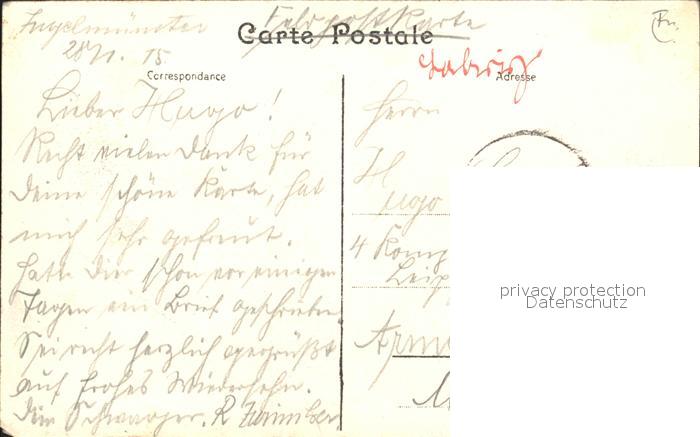 Ingelmünster Feldpostkarte
Carte Postale
28/1. 15.
Correspondance
Adresse
Lieber Hugo!
Recht vielen Dank für
Deine schöne Karte, hat
mich sehr gefreut.
Hatte Dir schon vor einigen
Tagen ein Brief geschrieben.
Sei recht herzlich gegrüßt
auf frohes Wiedersehn.
Dein Schwager. R.
Herrn
H
Hugo
4 Komp
Leip
Arm
privacy protection
Datenschutz